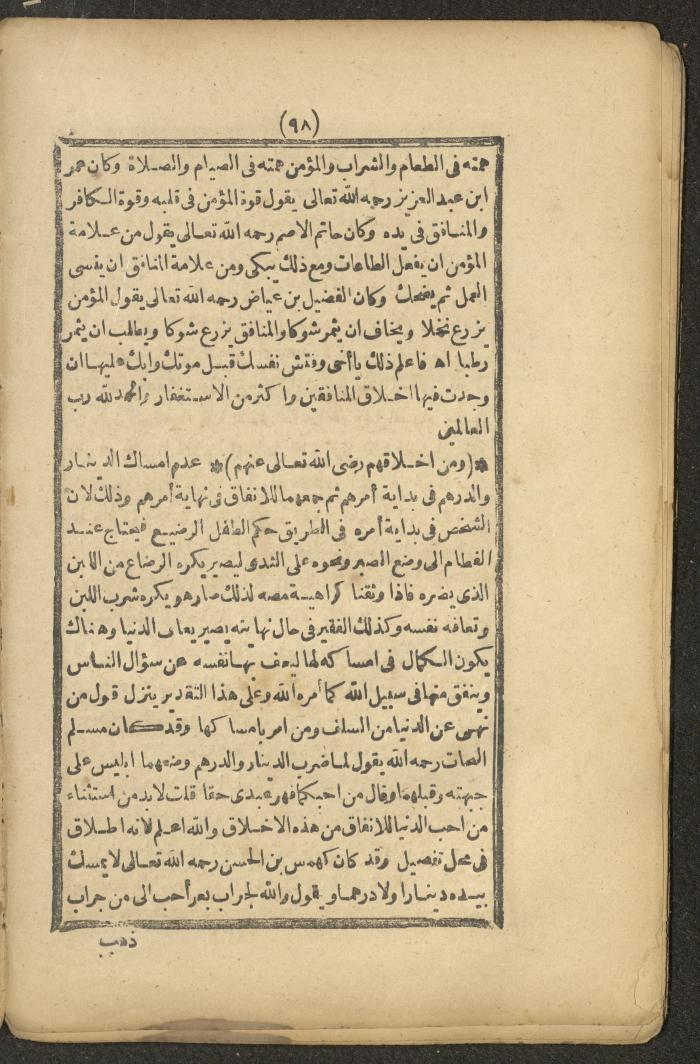 (٩٨)
همته فى الطعام والشراب والمؤمن همته فى الصيام والصلاة وكان عمر
ابن عبد العزيز رحمه الله تعالى يقول قوة المؤمن فى قلبه وقوة الكافر
والمنافق فى يده وكان حاتم الاصم رحمه الله تعالى يقول من علامة
المؤمن ان يفعل الطاعات ومع ذلك يبكى ومن علامة المنافق ان ينسى
العمل ثم يضحك وكان الفضيل بن عياض رحمه الله تعالى يقول المؤمن
يزرع نخلا ويخاف ان يثمر شوكا والمنافق يزرع شوكا ويطلب ان يثمر
رطبا اه فاعلم ذلك ياأخى وفتش نفسك قبل موتك وابك عليها ان
وجدت فيها اخلاق المنافقين واكثر من الاستغفار والحمد لله رب
العالمين
*(ومن اخلاقهم رضى الله تعالى عنهم)* عدم امساك الدينار
والدرهم فى بداية أمرهم ثم جمعهما للانفاق فى نهاية أمرهم وذلك لان
الشخص فى بداية أمره فى الطريق حكم الطفل الرضيع فيحتاج عند
الفطام الى وضع الصبر ونحوه على الثدى ليصير يكره الرضاع من اللبن
الذى يضره فاذا وثقنا كراهية مصه لذلك صار هو يكره شرب اللبن
وتعافه نفسه وكذلك الفقير فى حال نهايته يصير يعاف الدنيا وهناك
يكون الكمال فى امساكه لها ليعف بها نفسه عن سؤال الناس
وينفق منها فى سبيل الله كما أمره الله وعلى هذا التقدير ينزل قول من
نهى عن الدنيا من السلف ومن امر بامساكها وقد كان مسلم
النحات رحمه الله يقول لما ضرب الدينار والدرهم وضعهما ابليس على
جبهته وقبلهما وقال من احبكما فهو عبدى حقا قلت لابد من استثناء
من احب الدنيا للانفاق من هذه الاخلاق والله اعلم لانه اطلاق
فى محل تفصيل وقد كان كهمس بن الحسن رحمه الله تعالى لا يمسك
بيده دينارا ولا درهما ويقول والله لجراب بعر أحب الى من جراب
ذهب